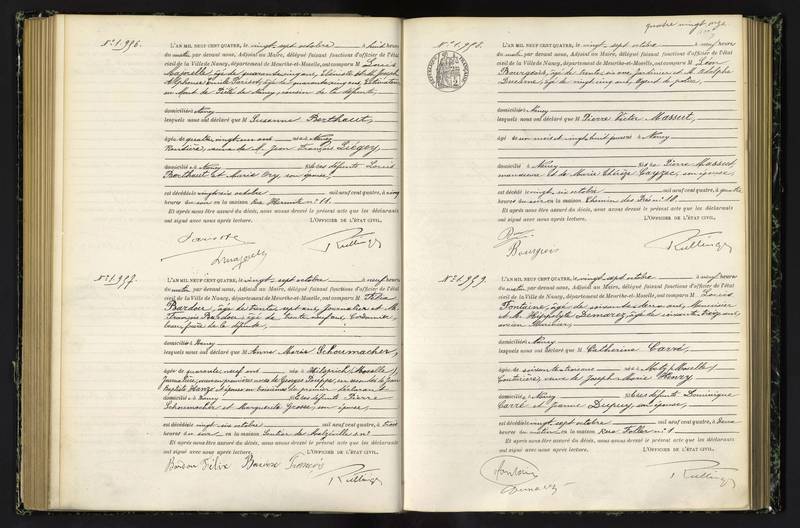 N° 1.996.
L'AN MIL NEUF CENT QUATRE, le vingt-sept octobre à huit heures
du matin par devant nous, Adjoint au Maire, délégué faisant fonctions d'officier de l'état
civil de la Ville de Nancy, département de Meurthe-et-Moselle, ont comparu M. Louis
âgé de quarante cinq ans, Ébéniste et M. Joseph
Alphonse Émile ans,
au Mont de Piété de Nancy, cousin de la défunte,
domiciliés à Nancy
lesquels nous ont déclaré que M Suzanne Berthaut,
âgée de quatre vingt un ans née à Nancy
Rentière, veuve de M. Jean François Liégey,
domiciliée à Nancy fille des défunts Louis
Berthaut et Marie Ory son épouse,
est décédée vingt-six octobre mil neuf cent quatre, à cinq
heures du soir en la maison Rue Hermite n° 11.
Et après nous être assuré du décès, nous avons dressé le présent acte que les déclarants
ont signé avec nous après lecture. L'OFFICIER DE L'ÉTAT CIVIL,
N° 1.997.
L'AN MIL NEUF CENT QUATRE, le vingt-sept octobre à neuf heures
du matin par devant nous, Adjoint au Maire, délégué faisant fonctions d'officier de l'état
civil de la Ville de Nancy, département de Meurthe-et-Moselle, ont comparu M. Félix
Bardon, âgé de trente sept ans, Journalier et M.
François Bardon, âgé de trente neuf ans, Cordonnier,
beau frère de la défunte,
domiciliés à Nancy
lesquels nous ont déclaré que M Anne Marie Schoumacher,
âgée de quarante neuf ans née à (Moselle)
Journalière, veuve en premières noces de Georges en secondes de Jean
Baptiste et épouse en troisièmes du premier déclarant,
domiciliée à Nancy fille des défunts Pierre
Schoumacher et Marguerite Grosse, son épouse,
est décédée vingt-six octobre mil neuf cent quatre, à trois
heures du soir en la maison Sentier de Malzéville
Et après nous être assuré du décès, nous avons dressé le présent acte que les déclarants
ont signé avec nous après lecture. L'OFFICIER DE L'ÉTAT CIVIL,
Bardon Félix Bardon François
quatre vingt onze
N° 1.998.
L'AN MIL NEUF CENT QUATRE, le vingt-sept octobre à neuf heures
du matin par devant nous, Adjoint au Maire, délégué faisant fonctions d'officier de l'état
civil de la Ville de Nancy, département de Meurthe-et-Moselle, ont comparu M. Léon
Bourgeois, âgé de trente six ans Jardinier et M. Adolphe
âgé de vingt cinq ans, Agent de police,
domiciliés à Nancy
lesquels nous ont déclaré que M Pierre Victor Massut,
âgé de un mois et vingt huit jours né à Nancy
domicilié à Nancy fils de Pierre Massut,
manœuvre et de Marie Thérèse Cayzac, son épouse,
est décédé le vingt-six octobre mil neuf cent quatre, à quatre
heures du soir en la maison Chemin des Prés n° 18.
Et après nous être assuré du décès, nous avons dressé le présent acte que les déclarants
ont signé avec nous après lecture. L'OFFICIER DE L'ÉTAT CIVIL,
Bourgeois
N° 1.999.
L'AN MIL NEUF CENT QUATRE, le vingt-sept octobre à neuf heures
du matin par devant nous, Adjoint au Maire, délégué faisant fonctions d'officier de l'état
civil de la Ville de Nancy, département de Meurthe-et-Moselle, ont comparu M. Louis
Fontaine, âgé de soixante ans, Menuisier
et M. Hippolyte Demarez, âgé de soixante ans,
ancien Menuisier,
domiciliés à Nancy
lesquels nous ont déclaré que M Catherine Carré,
âgée de soixante treize ans née à Metz (Moselle)
Couturière, veuve de Joseph Marie Henry
domiciliée à Nancy fille des défunts Dominique
Carré et Jeanne Dupuy son épouse,
est décédée vingt-sept octobre mil neuf cent quatre, à deux
heures du matin en la maison Rue n° 1
Et après nous être assuré du décès, nous avons dressé le présent acte que les déclarants
ont signé avec nous après lecture. L'OFFICIER DE L'ÉTAT CIVIL,
Fontaine